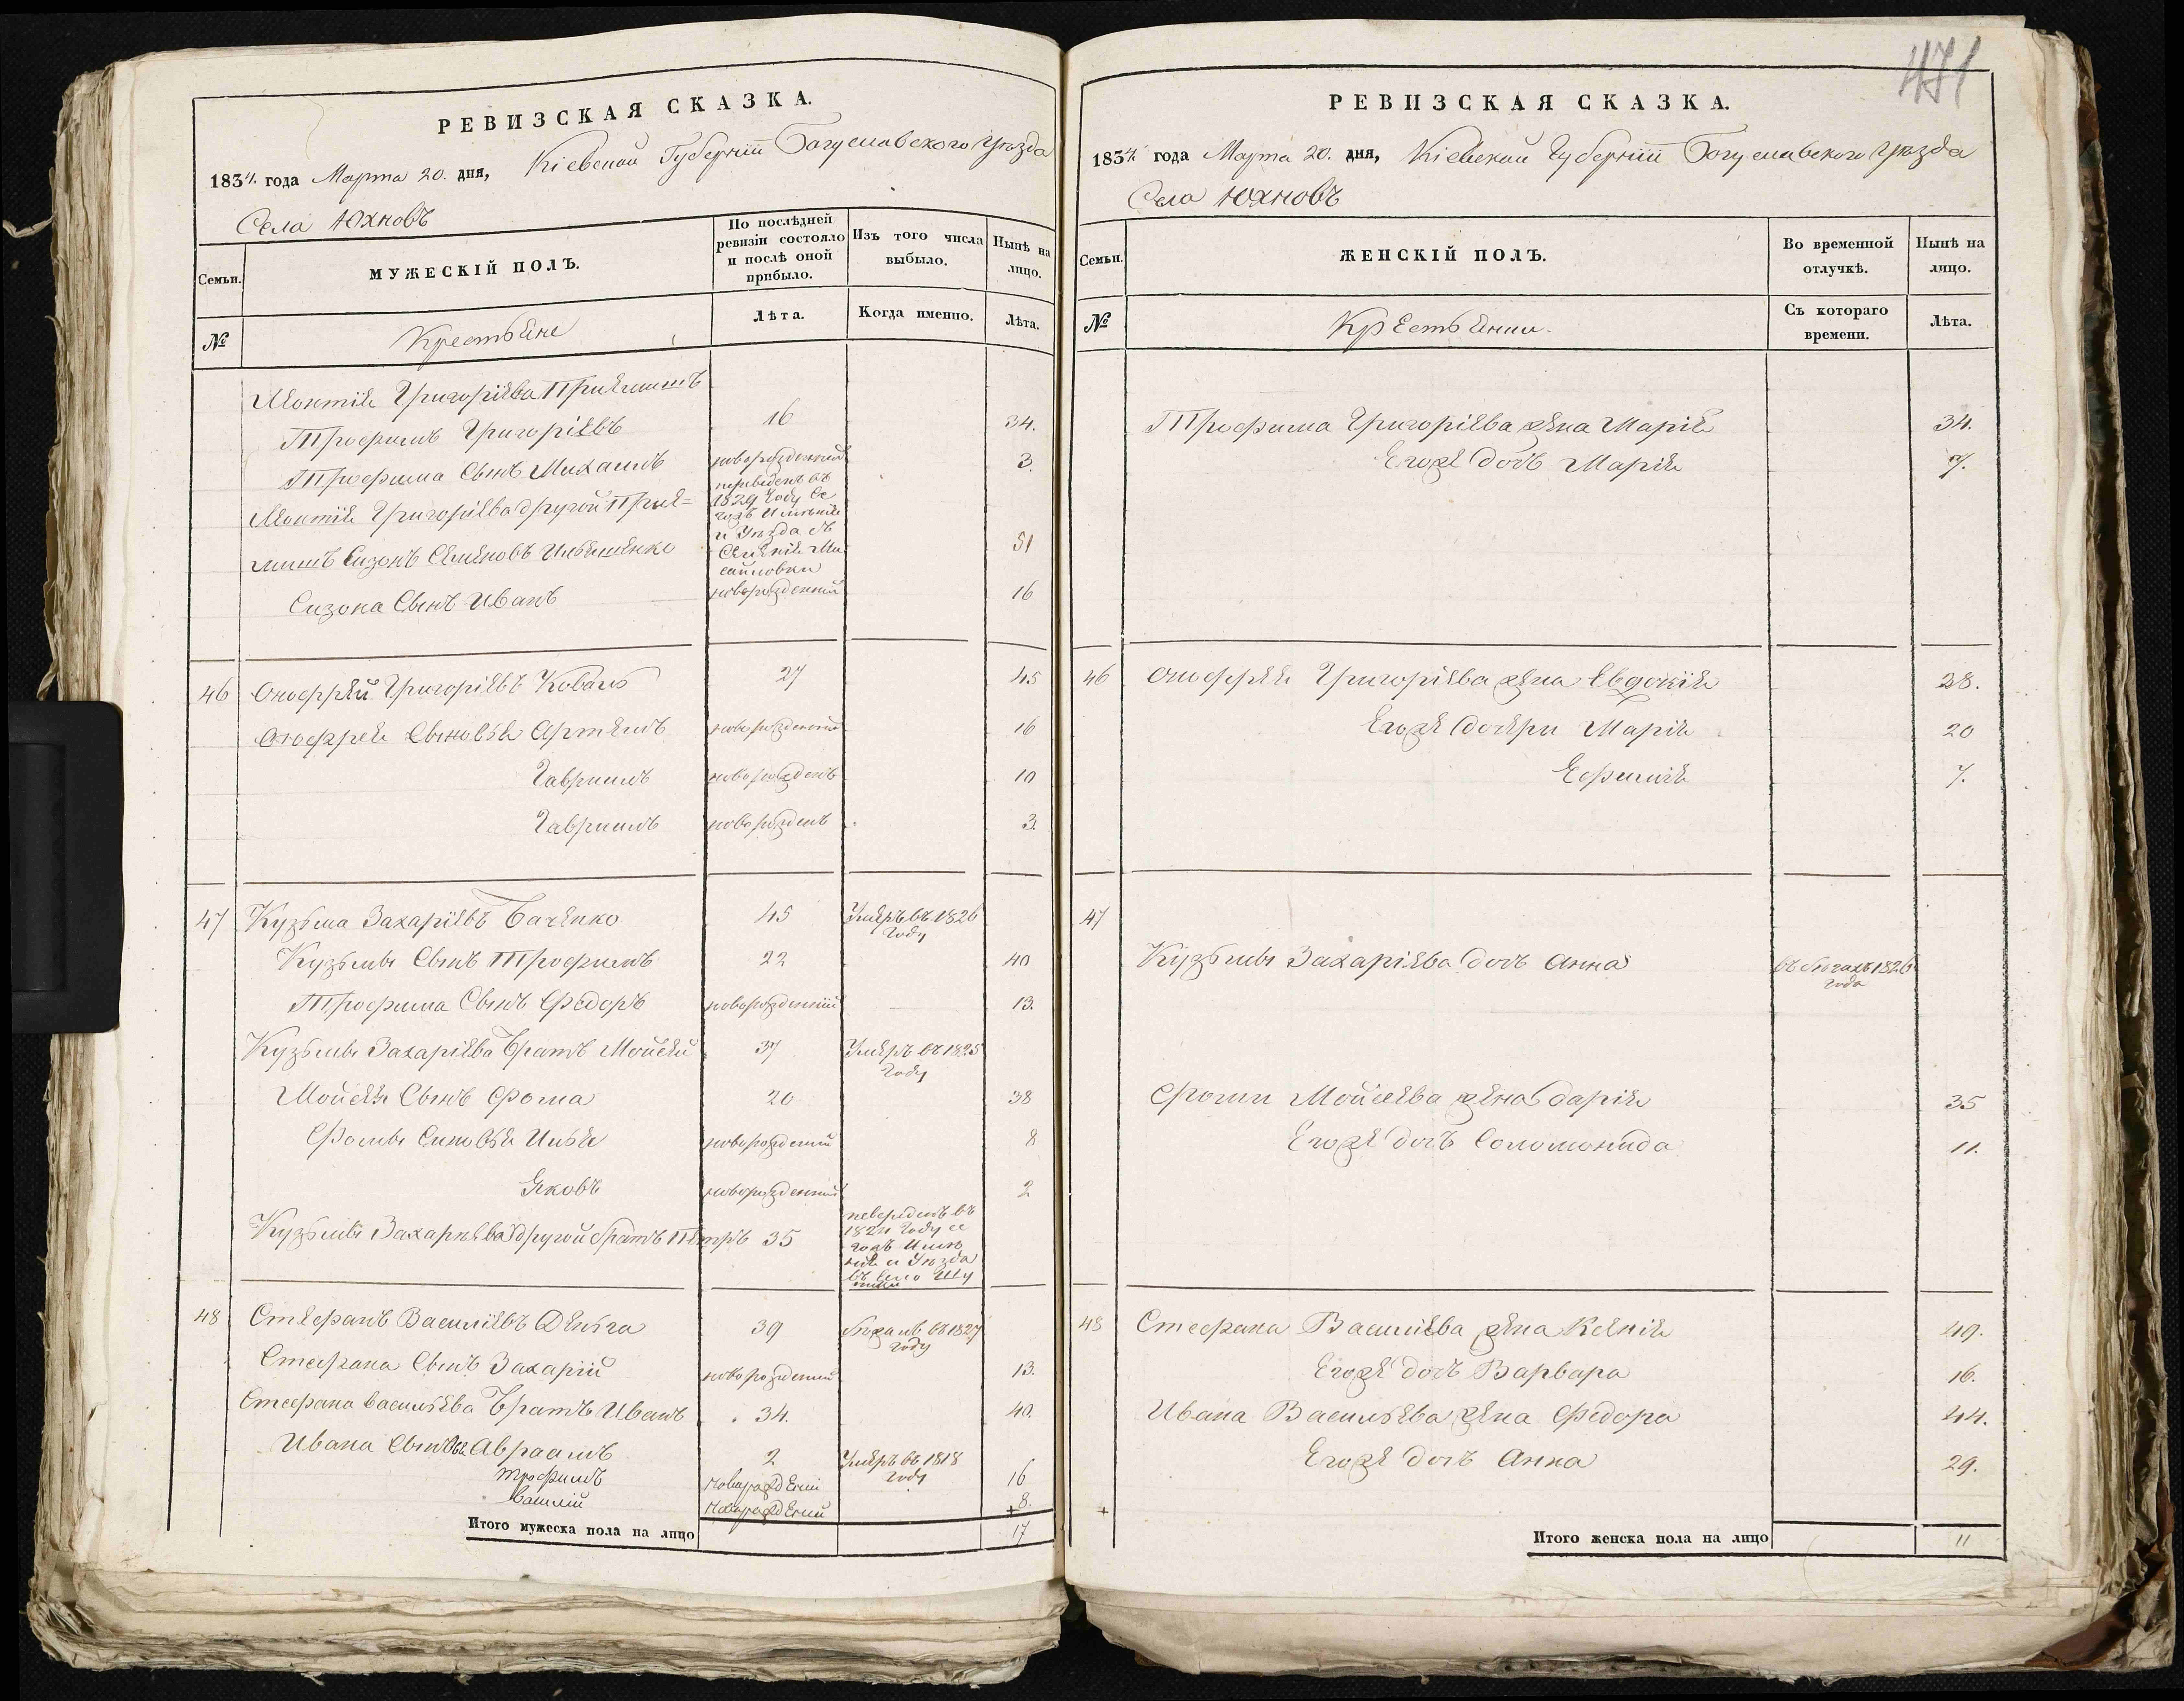 РЕВИЗСКАЯ СКАЗКА.
1834. года Марта 20. дня, Кіевской Губерніи Богуславского Уѣзда
Села Юхновъ
Семьи.
МУЖЕСКІЙ ПОЛЪ.
По послѣдней ревизіи состояло и послѣ оной прибыло.
Изъ того числа выбыло.
Нынѣ на лицо.
№
Крестьяне
Лѣта.
Когда именно.
Лѣта.
Григоріева
Трофимъ Григоріевъ 16 34.
Трофима Сынъ Михаилъ новорожденній 3.
Григоріева другой Пріе=
мишъ Сизонъ Семеновъ переведенъ въ 1829 Году и Уѣзда 51
Сизона Сынъ Иванъ новорожденній 16
46 Онофрей Григоріевъ Коваль 27 45
Онофрея Сыновья Артемъ новорожденній 16
Гавриилъ новорожденъ 10
Гавриилъ новорожденъ 3.
47 Кузьма Захаріевъ 45 Умеръ въ 1826 Году
Кузьмы Сынъ Трофимъ 22 40
Трофима Сынъ Федоръ новорожденній 13.
Кузьмы Захаріева Братъ Мойсей 37 Умеръ въ 1825 Году
Мойсея Сынъ Фома 20 38
Фомы Синовья Илья новорожденій 8
Яковъ новорожденній 2
Кузьмы Захаріева другой братъ Петръ 35 Году и Уѣзда въ село
48 Стефанъ Василіевъ 39 Бѣжалъ въ 1827 году
Стефана Сынъ Захарій новорожденій 13.
Стефана Васильева Братъ Иванъ 34. 40.
Ивана Сыновья Авраамъ 2 Умеръ въ 1818 Году
Трофимъ 16
Василій 8.
Итого мужеска пола на лицо 17
471
РЕВИЗСКАЯ СКАЗКА.
1834. года Марта 20. дня, Кіевской Губерніи Богуславского Уѣзда
Села Юхновъ
Семьи.
ЖЕНСКІЙ ПОЛЪ.
Во временной отлучкѣ.
Нынѣ на лицо.
№
Съ котораго времени.
Лѣта.
Трофима Григоріева жена Марія 34.
Егоже дочь Марія 7.
46 Онофрея Григоріева жена Евдокія 38.
Егоже дочери Марія 20
Ефимія 7.
47
Кузьмы Захаріева дочь Анна въ бѣгахъ 1826 года
Фоми Мойсеева жена Дарія 35
Егоже дочь Соломонида 11.
48 Стефана Василіева жена Ксенія 49.
Егоже дочь Варвара 16.
Ивана Васильева жена Федора 44.
Егоже дочь Анна 29.
Итого женска пола на лицо 11